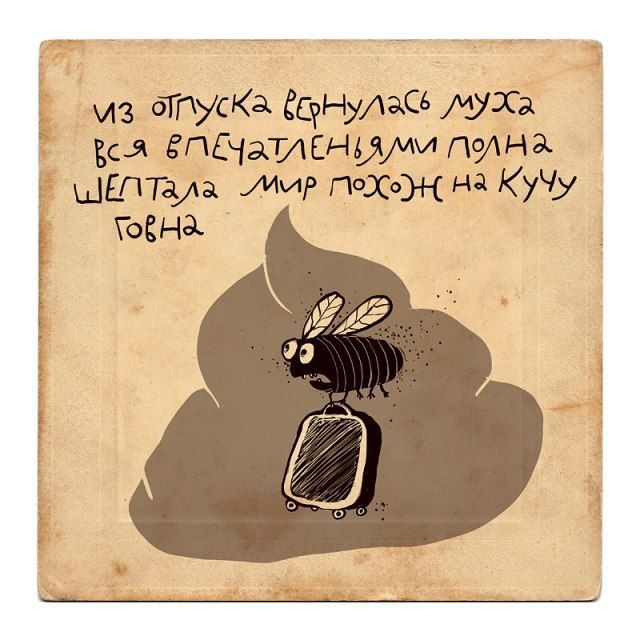 из отпуска вернулась муха
вся впечатленьями полна
шептала мир похож на кучу
говна